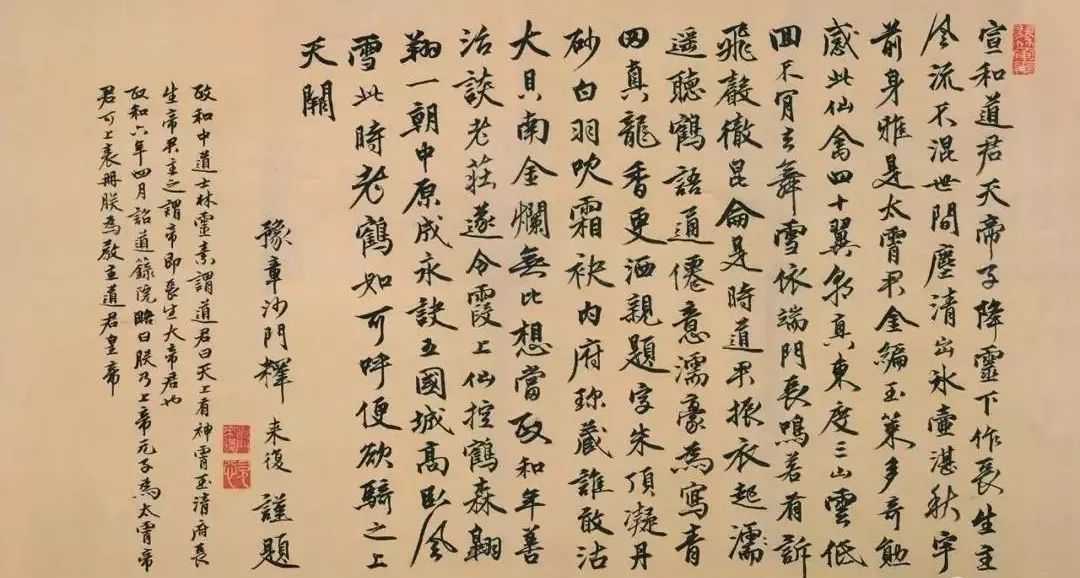 宣和道君天帝子降靈下作長生主
風流不混世間塵清出冰壺湛秋宇
前身雅是太霄君金編玉策多奇勳
感此仙禽四十翼朝真東度三山雲低
回不肎去舞雪依端門長鳴若有訴
飛聲徹昆侖是時道君振衣起濡
遥聽鶴語通僊意濡豪為寫青
田真龍香更洒親題字朱頂凝丹
砂白羽吹霜袂内府珎藏誰敢沽
大貝南金爛無比想當政和年善
治談老莊遂令霞上仙控鶴森翱
翔一朝中原成永訣五國城高卧風
雪此時老鶴如可呼便欲騎之上
天闕
豫章沙門釋 来復 謹題
政和中道士林靈素謂道君曰天上有神霄玉清府長
生帝君主之謂帝即長生大帝君也
政和六年四月詔道籙院略曰朕乃上帝元子為太霄帝
君可上表冊朕為教主道君皇帝